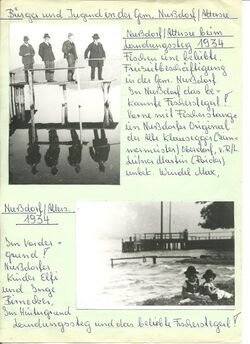 Bürger und Jugend in der Gem. Nußdorf/Attersee
Nußdorf/Attersee beim
Landungssteg 1934
Fischen eine beliebte
Freizeitbeschäftigung
in der Gem. Nußdorf
In Nußdorf das be-
kannte Fischersteg
Vorne mit Fischerstange
ein Nußdorfer Original
der Alte Klausegger
Oberdorf, v.R./L
Martin
Wendl Max,
Nußdorf/Atters.
1934
Im Vorder-
grund
Nußdorfer
Kinder Elfi
und Inge
Im Hintergrund
Landungssteg und das beliebte Fischersteg